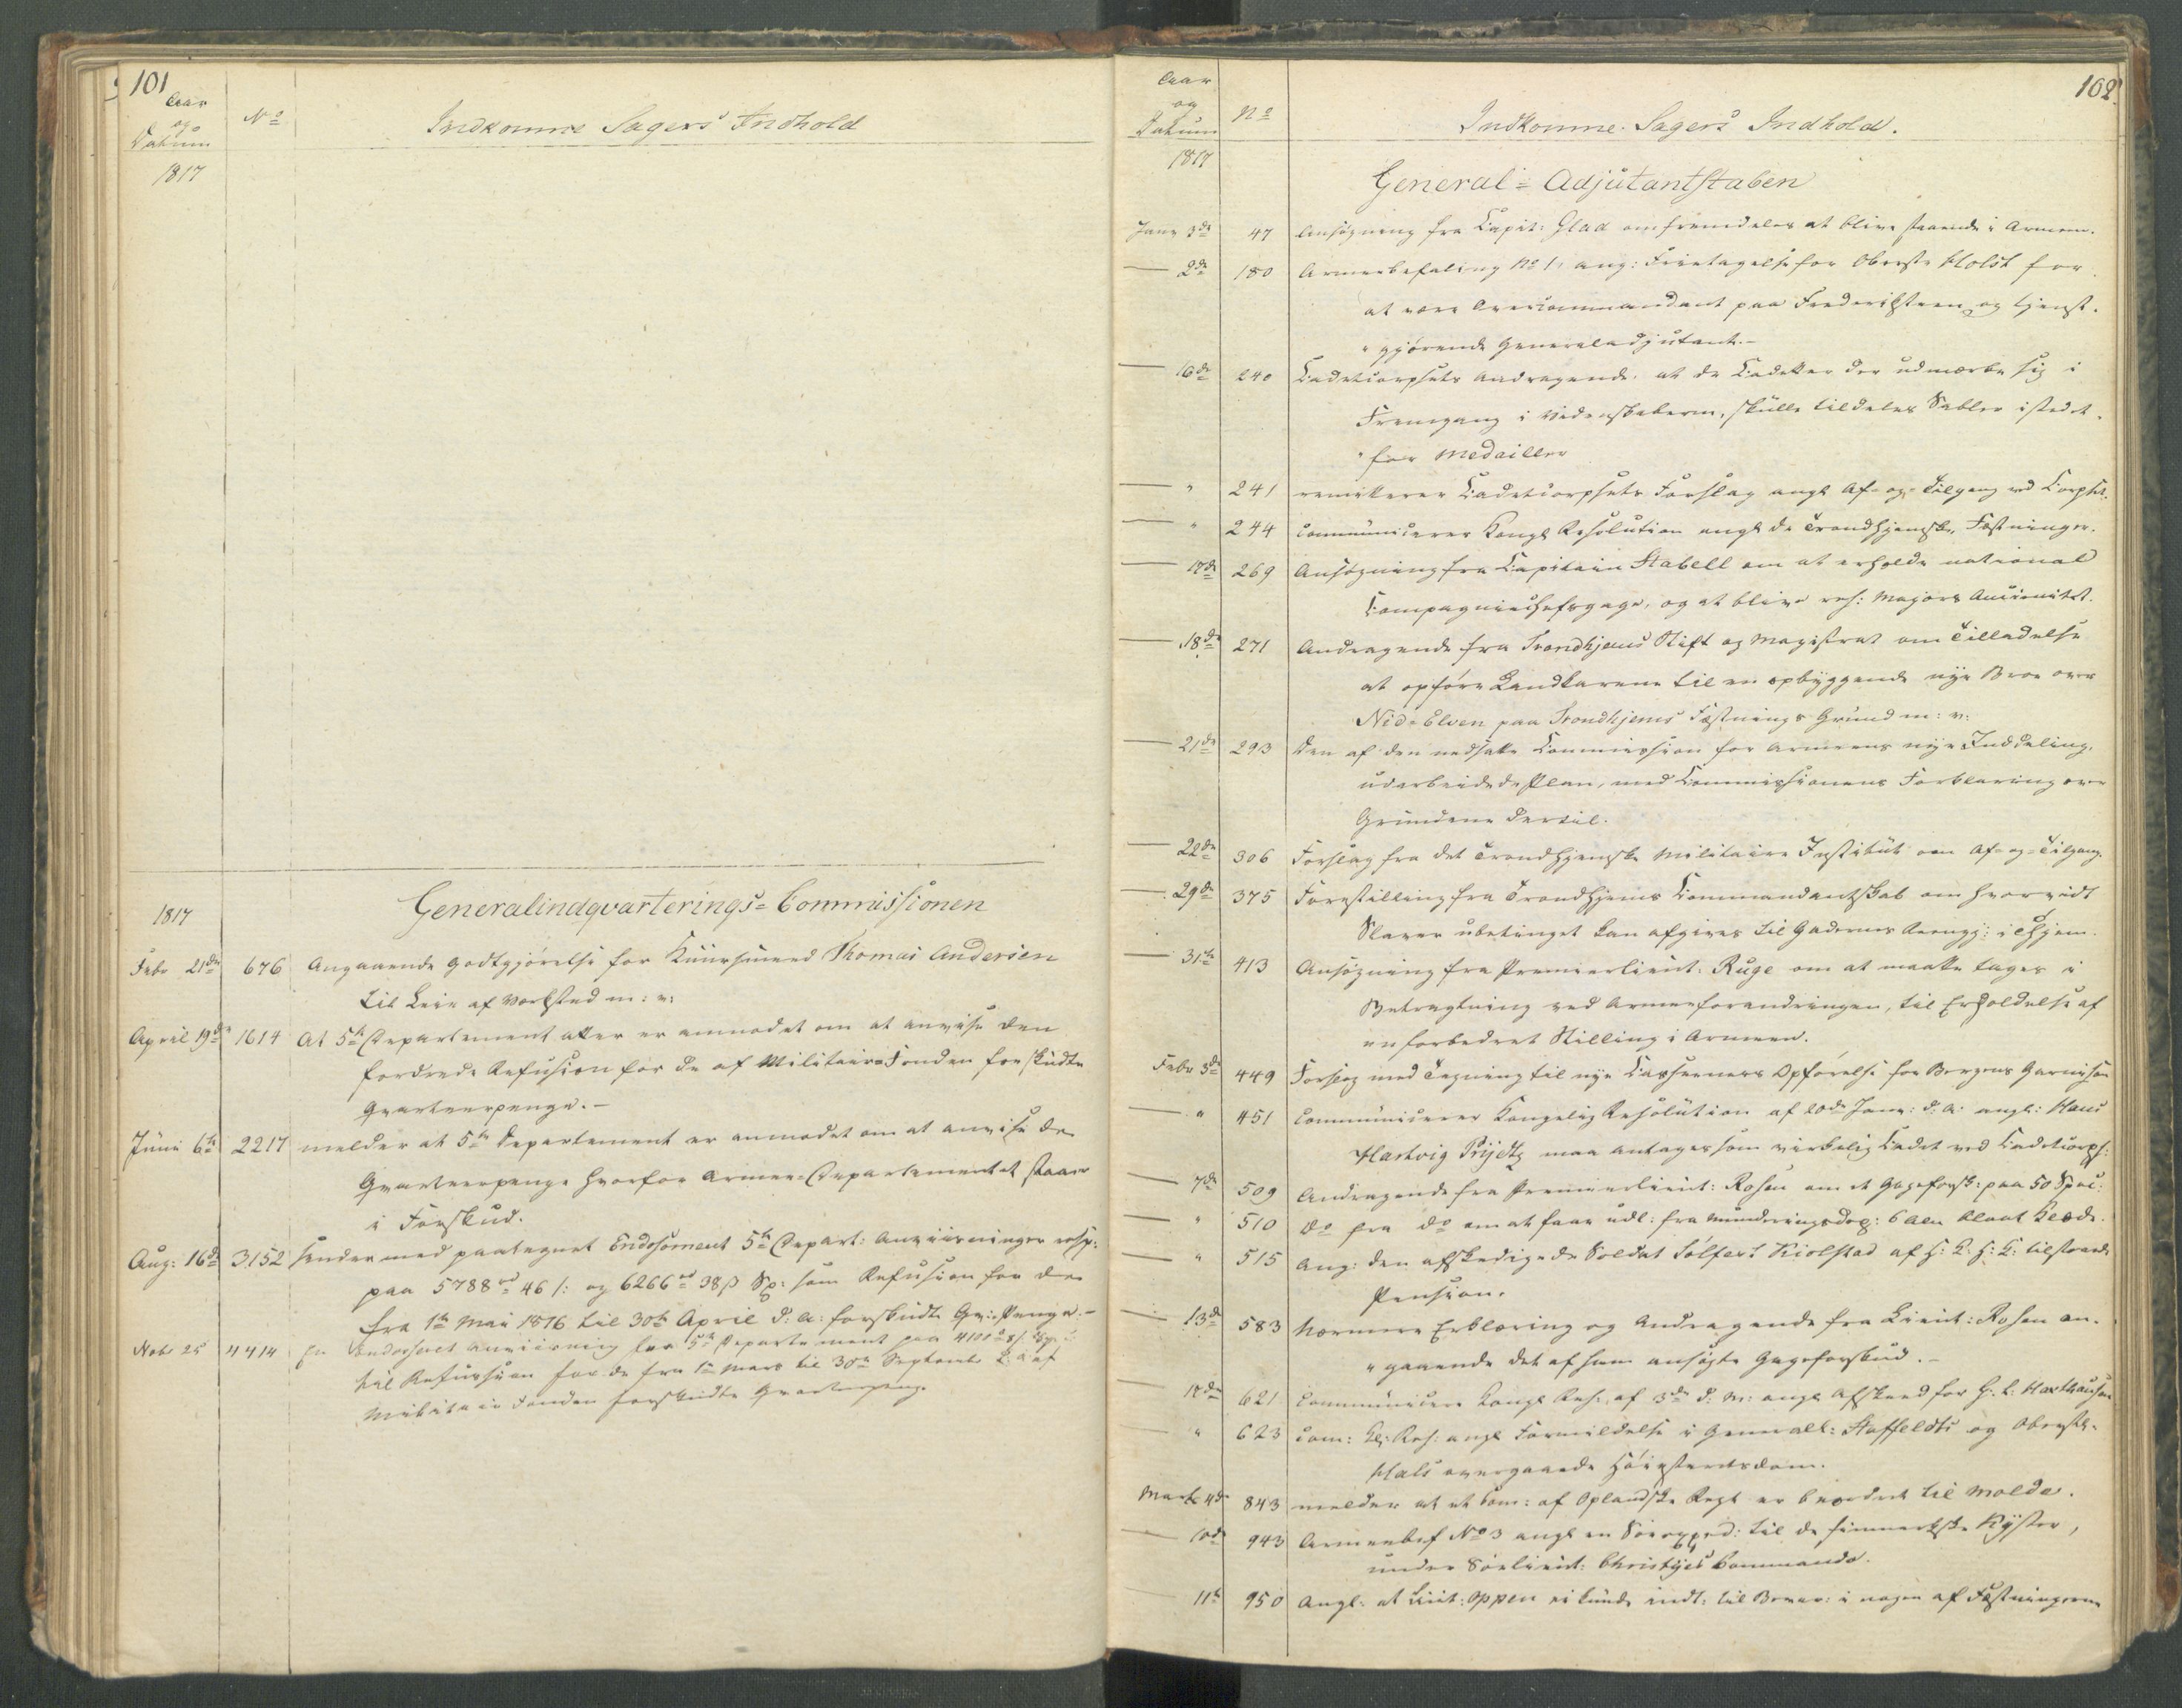 101
Aar
og
Datum
No
Indkomne Sagers Indhold
1817
1817
Generalindqvarterings-Commissionen
Febr 21de 676 Angaaende Godtgjörelse for Kuursmed Thomas Andersen
til Leie af Værksted m: v:
April 19de 1614 At 5te Departement atter er anmodet om at anvise den
fordrede Refusion for de af Militaire Fonden forskudte
Qvarteerpenge.-
Juni 6te 2217 melder at 5te Departement er anmodet om at anvise de
Qvarteerpenge hvorfor Armee-Departementet staaer
i Forskud.
Aug: 16de 3152 sender med paategnet Endosement 5te Depart: Anviisninger resp:
paa 5788 46 /: og 6266 38 ß Sp: som Refusion for de
fra 1te Mai 1816 til 30te April d: A: forskudte Qv: Penge.-
Nobr 25 4414 En Endosseret Anviisning fra 5te Departement paa 4100
til Refussion for de fra 1te Mars til 30te Septembr d: A: af
Militair Fonden forskudte Qvarteerpenge.
102
Aar
og
Datum
No
Indkomne Sagers Indhold.
1817
General-Adjutantstaben
Janr 3de 47 Ansögning fra Capit: Glad om fremdeles at blive staaende i Armeen.
— 2de 180 Armeebefaling No 1, ang: Fritagelse for Oberste Holst for
at være Overcommandant paa Frederiksteen og tjenst-
" gjörende Generaladjutant.-
— 16de 240 Cadetcorpsets Andragende, at de Cadetter der udmærke sig i
Fremgang i Videnskaberne, skulle tildeles Sabler istedet-
" for Medailler
— " 241 remitterer Cadetcorpsets Forslag angl Af- og Tilgang ved Corpset.
— " 244 communicerer Kongl Resolution angl de Trondhjemske Fæstninger.
— 17de 269 Ansögning fra Capitain Stabell om at erholde national
Compagniechefsgage, og at blive res: Majors Anciennitet.
— 18de 271 Andragende fra Trondhjems Stift og Magistrat om Tilladelse
at opföre Landkarene til en opbyggende nye Broe over
Nid-Elven paa Trondhjems Fæstnings Grund m: v:
— 21de 293 Den af den nedsatte Commission for Armeens nye Inddeling,
udarbeidede Plan, med Commissionens Forklaring over
Grundene dertil.
— 22de 306 Forslag fra det Trondhjemske Militaire Institut om Af- og Tilgang.
— 29de 375 Forestilling fra Trondhjems Commandantskab om hvorvidt
Slaver ubetinget kan afgives til Gadernes Reengj: i Thjem.
— 31te 413 Ansögning fra Premierlieut: Ruge om at maatte tages i
Betragtning ved Armeeforandringen, til Erholdelse af
en forbedret Stilling i Armeen.
Febr 3de 449 Forslag med Tegning til nye Casserners Opförelse for Bergens Garnison
— " 451 communicerer Kongelig Resolution af 20de Janr: d: A: angl: Hans
Hartvig Prijdtz maa antages som virkelig Cadet ved Cadetcorps:
— 7de 509 Andragende fra Premierlieut: Rosen om et Gageforsk: paa 50 Spec:
— " 510 Do fra Do om at faae udl: fra Munderingsdep: 6 Alen blaat Klæde.
— " 515 Ang: den afskedigede Soldat Solfest Kiolstad af H: K: H: K: tilstaaede
Pension.
— 13de 583 Nærmere Erklæring og Andragende fra Lieut: Rosen an-
" gaaende det af ham ansögte Gageforskud.-
— 18de 621 communicere Kongl Res: af 3de d: M: angl Afskeed for G: L: Haxthausen
— " 623 com: Kl: Res: angl Formildelse i Generall: Staffeldts og Oberstl.
Hals overgaaede Höiesteretsdom.
Marts 4de 843 melder at et Com: af Oplandske Regt er beordret til Molde.
— 10de 943 Armeebef No 3 angl en Söeexped: til de finmarkske Kyster,
under Sölieut: Christjes Commando.
11te 950 Angl: at Lieut: Oppen ei kunde indt: til Bevar: i nogen af Fæstningerne